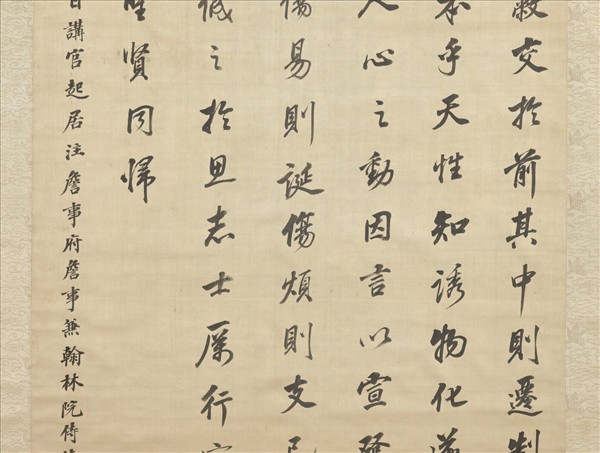 蔽交於前其中則遷制
乎天性知誘物化遂
人心之動因言以宣發
傷易則誕傷煩則支己
誠之於思志士厲行守
聖賢同歸
日講官起居注詹事府詹事兼翰林院侍